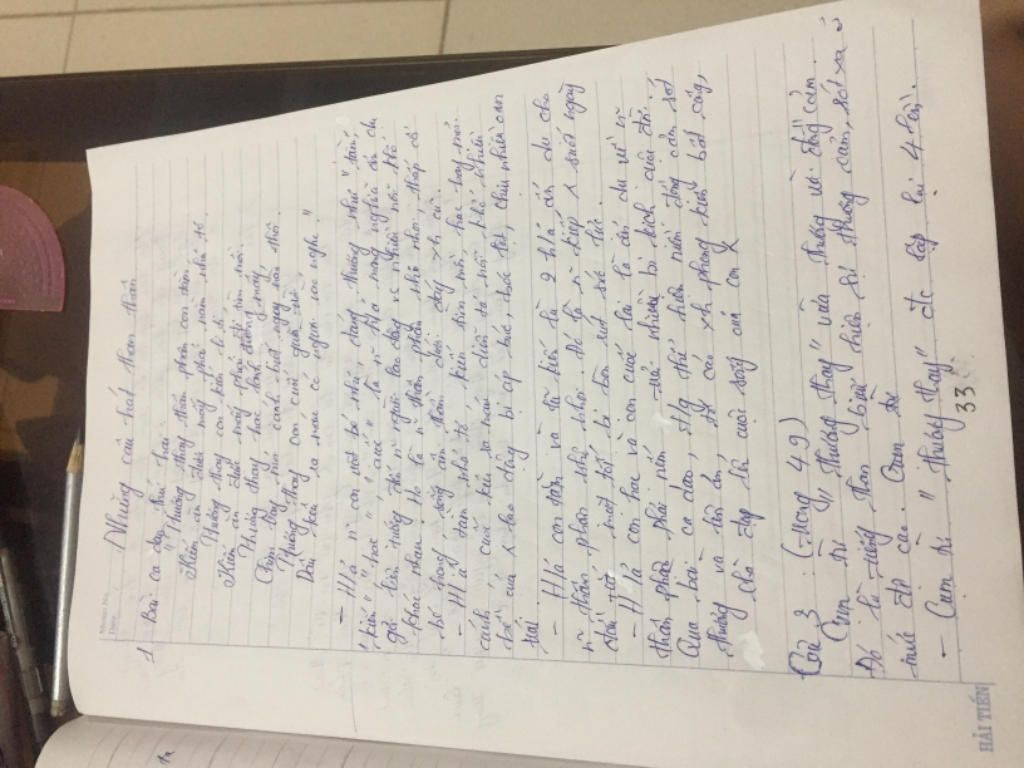 Những câu hát than thân
1 Bài ca dao thứ hai:
"Thương thay thân phận con tằm,
Kiếm ăn được mấy phải nằm nhả tơ.
Thương thay lũ kiến li ti,
Kiếm ăn được mấy phải đi tìm mồi.
Thương thay hạc lánh đường mây,
Chim bay mỏi cánh biết ngày nào thôi.
Thương thay con cuốc giữa trời,
Dầu kêu ra máu có người nào nghe."
- H/á n~ con vật bé nhỏ, đáng thương như "tằm,
kiến" "hạc" "cuốc" là n~ h/a mang nghĩa ẩn dụ
gợi liên tưởng đến n~ người lao động vs nhiều nỗi khổ
khác nhau. Họ là n~ thân phận nhỏ nhoi thấp cổ
bé họng, sống âm thầm dưới đáy xh cũ.
- H/ả tằm nhả tơ, kiến tìm mồi, hạc bay mỏi
cánh cuốc kêu ra máu diễn tả nỗi khổ nhiều
bề của lao động bị áp bức, bóc lột, chịu nhiều oan
trái.
- H/á con tằm và lũ kiến là 2 h/á ẩn dụ cho
n~ thân phận nhỏ nhoi. Đó là n~ kiếp suốt ngày
bị bòn rút sức lực.
- H/á con hạc và con cuốc lại là ẩn dụ về n~
thân phận phải nếm trải nhiều bi kịch cuộc đời.
Qua bài ca dao, t/g thể hiện niềm đồng cảm xót
thương và lên án, tố cáo xh phong kiến bất công,
chà đạp lên cuộc sống của con ng
Câu 3: (trong 49)
Cụm từ "thương thay" vừa thương vừa đồng cảm.
Đó là tiếng than biểu hiện sự thương cảm, xót xa ở
mức độ cao. Cụm từ
- Cụm từ "thương thay" đc lặp lại 4 lần.
33
HẢI TIẾN